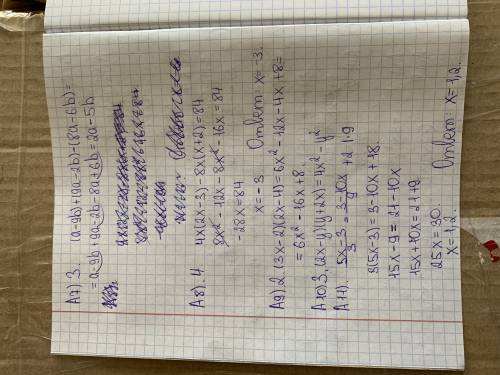 А7) 3. (a-9b)+(9a-2b)-(8a-6b)=
= a-9b+9a-2b-8a+6b=2a-5b
А8) 4. 4x(2x-3)-8x(x+2)=84
8x²-12x-8x²-16x=84
-28x=84
x=-3 Ответ: x=-3.
А9) 2. (3x-2)(2x-4)=6x²-12x-4x+8=
= 6x²-16x+8
А10) 3, (2x-y)(y+2x)=4x²-y²
А11). (5x-3)/3 = (3-10x)/9 + 2 |·9
3(5x-3)=3-10x+18
15x-9=21-10x
15x+10x=21+9
25x=30
x=1,2. Ответ: x=1,2.